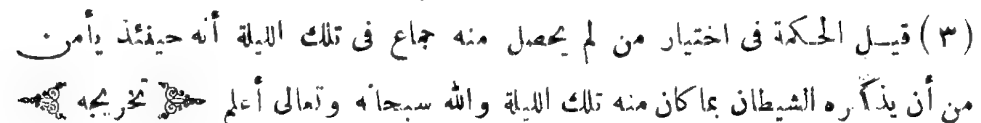 (٣) قيل الحكمة فى اختيار من لم يحصل منه جماع فى تلك الليلة أنه حينئذ يأمن
من أن يذكره الشيطان بما كان منه تلك الليلة والله سبحانه وتعالى أعلم تخريجه